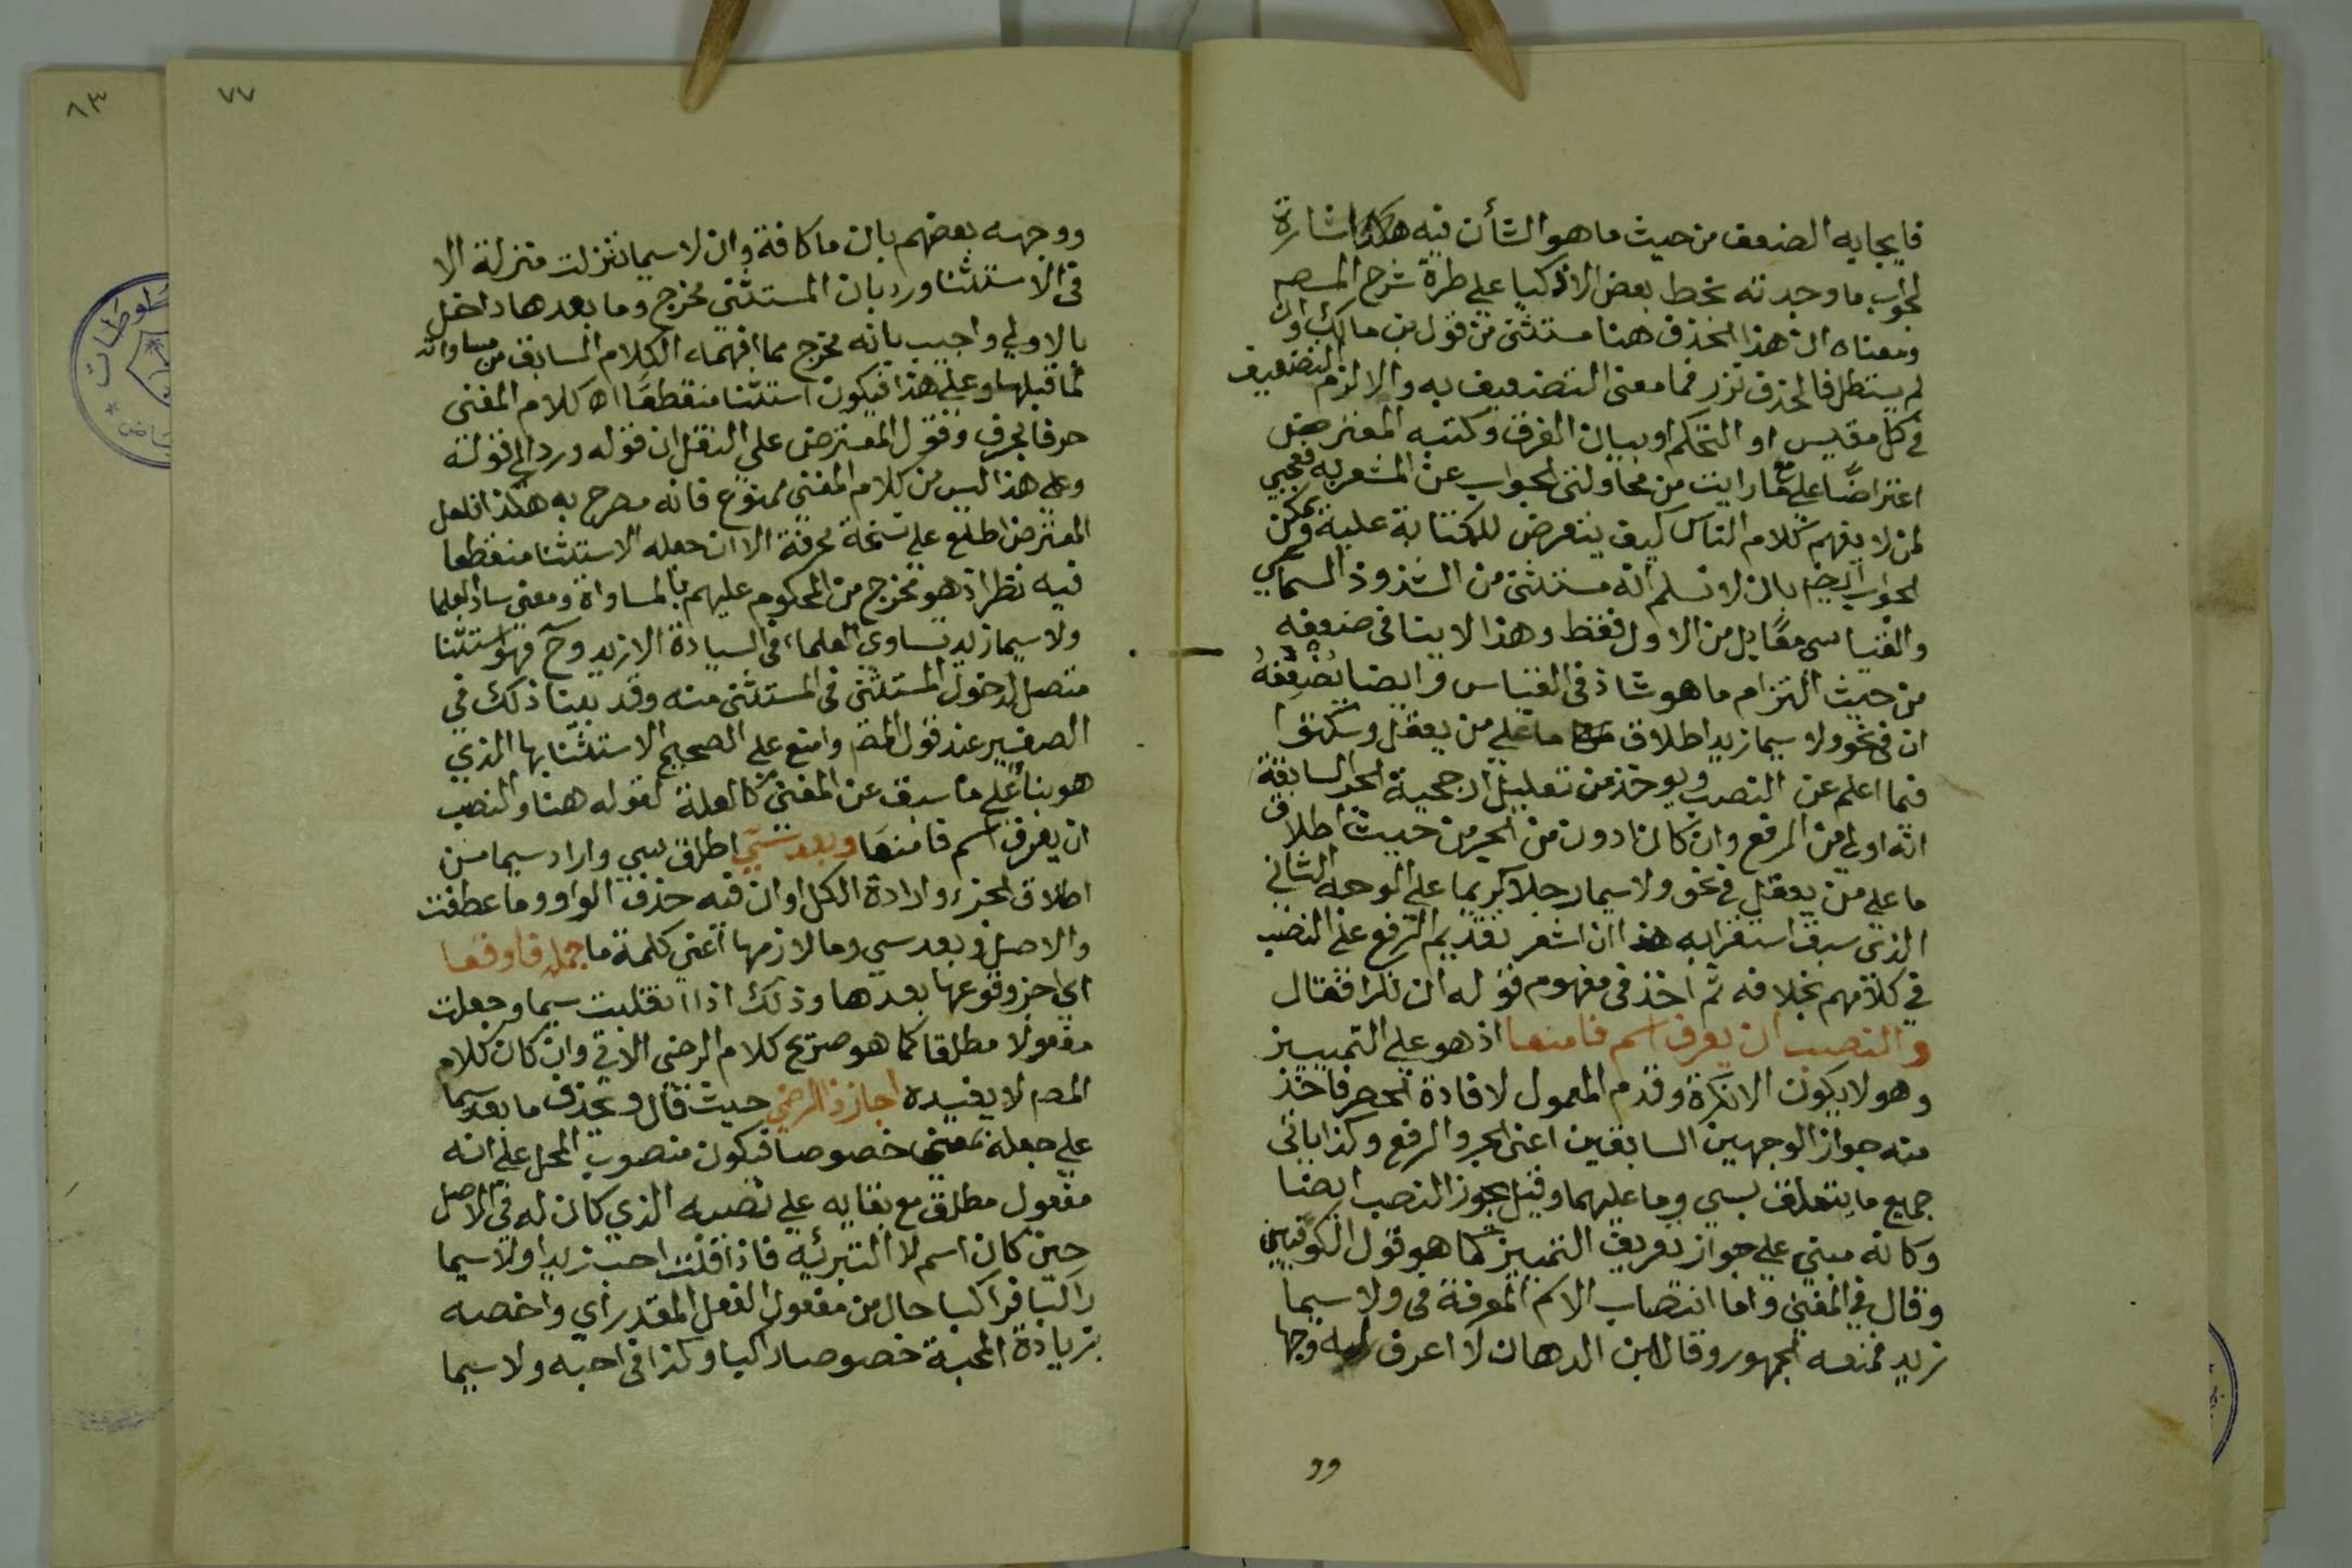 فايجابه الضعف من حيث ما هو الشأن فيه هكذا اشارة
لجواب ما وجدته بخط بعض الاذكيا على طرة شرح المصم
ومعناه ان هذا الحذف هنا مستثنى من قول بن مالك وان
لم يستطل فالحذف نزر فما معنى التضعيف به والا لزم التضعيف
في كل مقيس او التحكم او ببيان الفرق وكتبه المعترض
اعتراضًا على ما رايت من محاولتى الجواب عن المشعر به فعجبي
لمن لا يفهم كلام الناس كيف يتعرض للكتابة عليه ويمكن
الجواب ايضا بان لا نسلم انه مستثنى من الشذوذ السماعي
والقياسى مقابل من الاول فقط وهذا لا ينافى ضعفه
من حيث التزام ما هو شاذ فى القياس وايضا يضعفه
ان فى نحو ولا سيما زيد اطلاق ما على من يعقل وسكتوا
فيما اعلم عن النصب ويوخذ من تعليل ارجحية الجر السابقة
انه اولى من الرفع وان كان ادون من الجر من حيث اطلاق
ما على من يعقل في نحو ولا سيما رجلا كريما على الوجه الثاني
الذى سبق استقرابه هذا ان اشعر تقديم الرفع على النصب
في كلامهم بخلافه ثم اخذ فى مفهوم قوله ان نكرا فقال
والنصب ان يعرف اسم فامنعا اذ هو على التمييز
وهو لا يكون الا نكرة وقدم المعمول لافادة الحصر فاخذ
منه جواز الوجهين السابقين اعنى الجر والرفع وكذا ياتى
جميع ما يتعلق بسي وما عليهما وقيل يجوز النصب ايضا
وكانه مبني على جواز تعريف التمييز كما هو قول الكوفيين
وقال في المغني واما انتصاب الاسم المعرفة فى ولا سيما
زيد فمنعه الجمهور وقال ابن الدهان لا اعرف له وجها
وو
٧٧
ووجهه بعضهم بان ما كافة وان لا سيما تنزلت منزلة الا
فى الاستثنا ورد بان المستثنى مخرج وما بعدها داخل
بالاولي واجيب بانه مخرج مما افهمه الكلام السابق من مساواته
لما قبلها وعلى هذا فيكون استثنا منقطعًا اه كلام المغنى
حرفا بحرف وقول المعترض على النقل ان قوله ورد الى قوله
وعلى هذا ليس من كلام المغنى ممنوع فانه مصرح به هكذا فلعل
المعترض اطلع على نسخة محرفة الا ان جعله الاستثنا منقطعا
فيه نظر اذ هو مخرج من المحكوم عليهم بالمساواة ومعنى ساد العلما
ولا سيما زيد تساوى العلماء فى السيادة الا زيد وح فهو استثنا
متصل لدخول المستثنى فى المستثنى منه وقد بينا ذلك في
الصغير عند قول المصم وامنع على الصحيح الاستثنا بها الذي
هو بناء على ما سبق عن المغنى كالعلة لقوله هنا والنصب
ان يعرف اسم فامنعا وبعد سي اطلق سي واراد سيما من
اطلاق الجزء وارادة الكل او ان فيه حذف الواو وما عطفت
والاصل وبعد سي وما لازمها اعني كلمة ما جملة فاوقعا
اي اجز وقوعها بعدها وذلك اذا انقلبت سيما وجعلت
مفعولا مطلقا كما هو صريح كلام الرضى الاتي وان كان كلام
المصم لا يفيده اجازذ الرضي حيث قال ويحذف ما بعد سيما
على جعله بمعنى خصوصا فيكون منصوب المحل على انه
مفعول مطلق مع بقايه على نصبه الذي كان له في الاصل
حين كان اسم لا التبرئية فاذا قلت احب زيدا ولا سيما
راكبا فراكبا حال من مفعول الفعل المقدر أي واخصه
بزيادة المحبة خصوصا راكبا وكذا فى احبه ولا سيما
٨٣